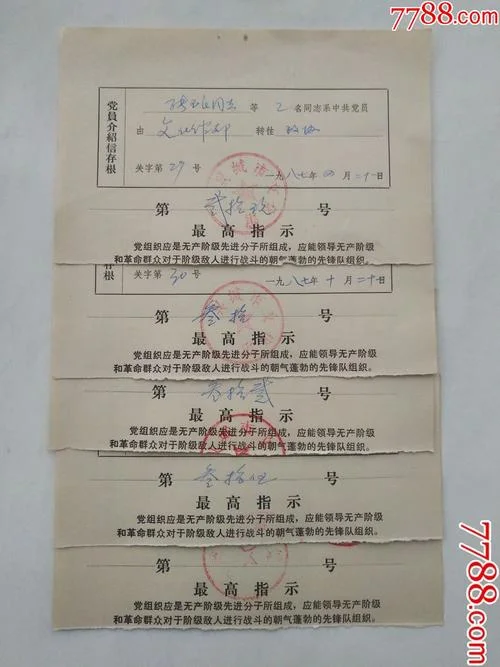 7788.com
党員介紹信存根
同志 等 2 名同志系中共党员
由 文化 部 转往 政协
关字第 29 号 一九八七年 四 月 二十一日
第 贰拾玖 号
最高指示
党组织应是无产阶级先进分子所组成，应能领导无产阶级
和革命群众对于阶级敌人进行战斗的朝气蓬勃的先锋队组织。
存根
关字第 30 号 一九八七年 十 月 二十日
第 叁拾 号
最高指示
党组织应是无产阶级先进分子所组成，应能领导无产阶级
和革命群众对于阶级敌人进行战斗的朝气蓬勃的先锋队组织。
第 叁拾贰 号
最高指示
党组织应是无产阶级先进分子所组成，应能领导无产阶级
和革命群众对于阶级敌人进行战斗的朝气蓬勃的先锋队组织。
第 叁拾 号
最高指示
党组织应是无产阶级先进分子所组成，应能领导无产阶级
和革命群众对于阶级敌人进行战斗的朝气蓬勃的先锋队组织。
第 号
最高指示
党组织应是无产阶级先进分子所组成，应能领导无产阶级
和革命群众对于阶级敌人进行战斗的朝气蓬勃的先锋队组织。
7788.com